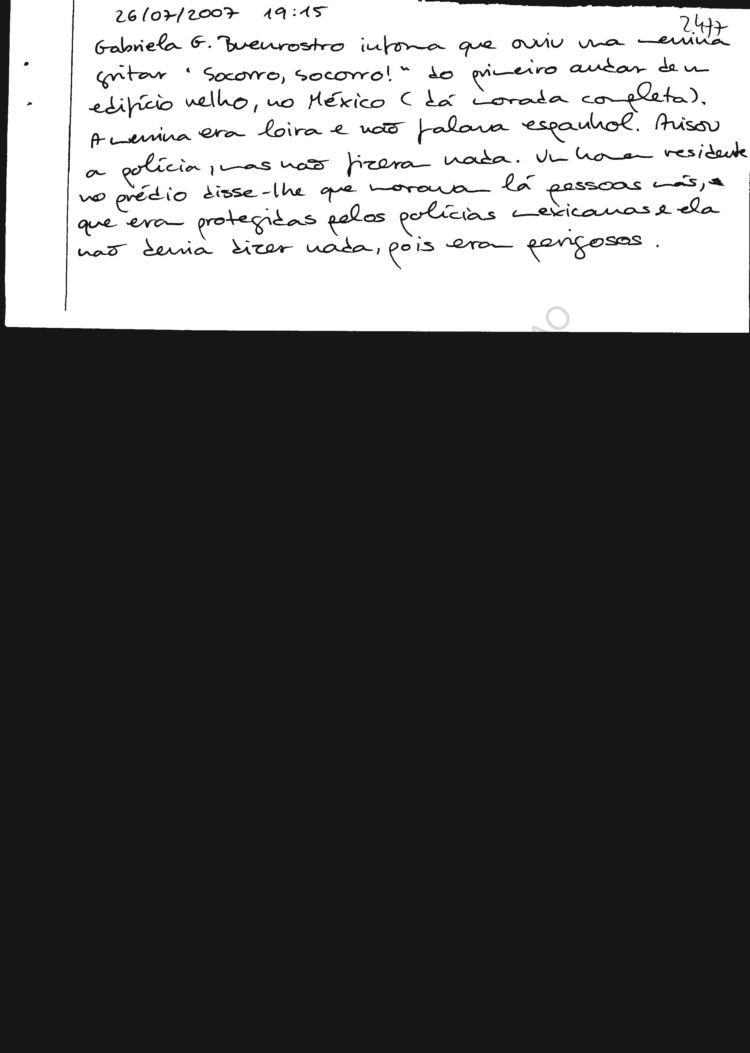 26/07/2007 19:15
2477
Gabriela G. Buenrostro informa que ouviu uma menina
gritar "Socorro, socorro!" do primeiro andar de um
edifício velho, no México (dá morada completa).
A menina era loira e não falava espanhol. Avisou
a polícia, mas não fizeram nada. Um homem residente
no prédio disse-lhe que moravam lá pessoas más, e
que eram protegidas pelos polícias mexicanas e ela
não devia dizer nada, pois eram perigosos.
ÃO